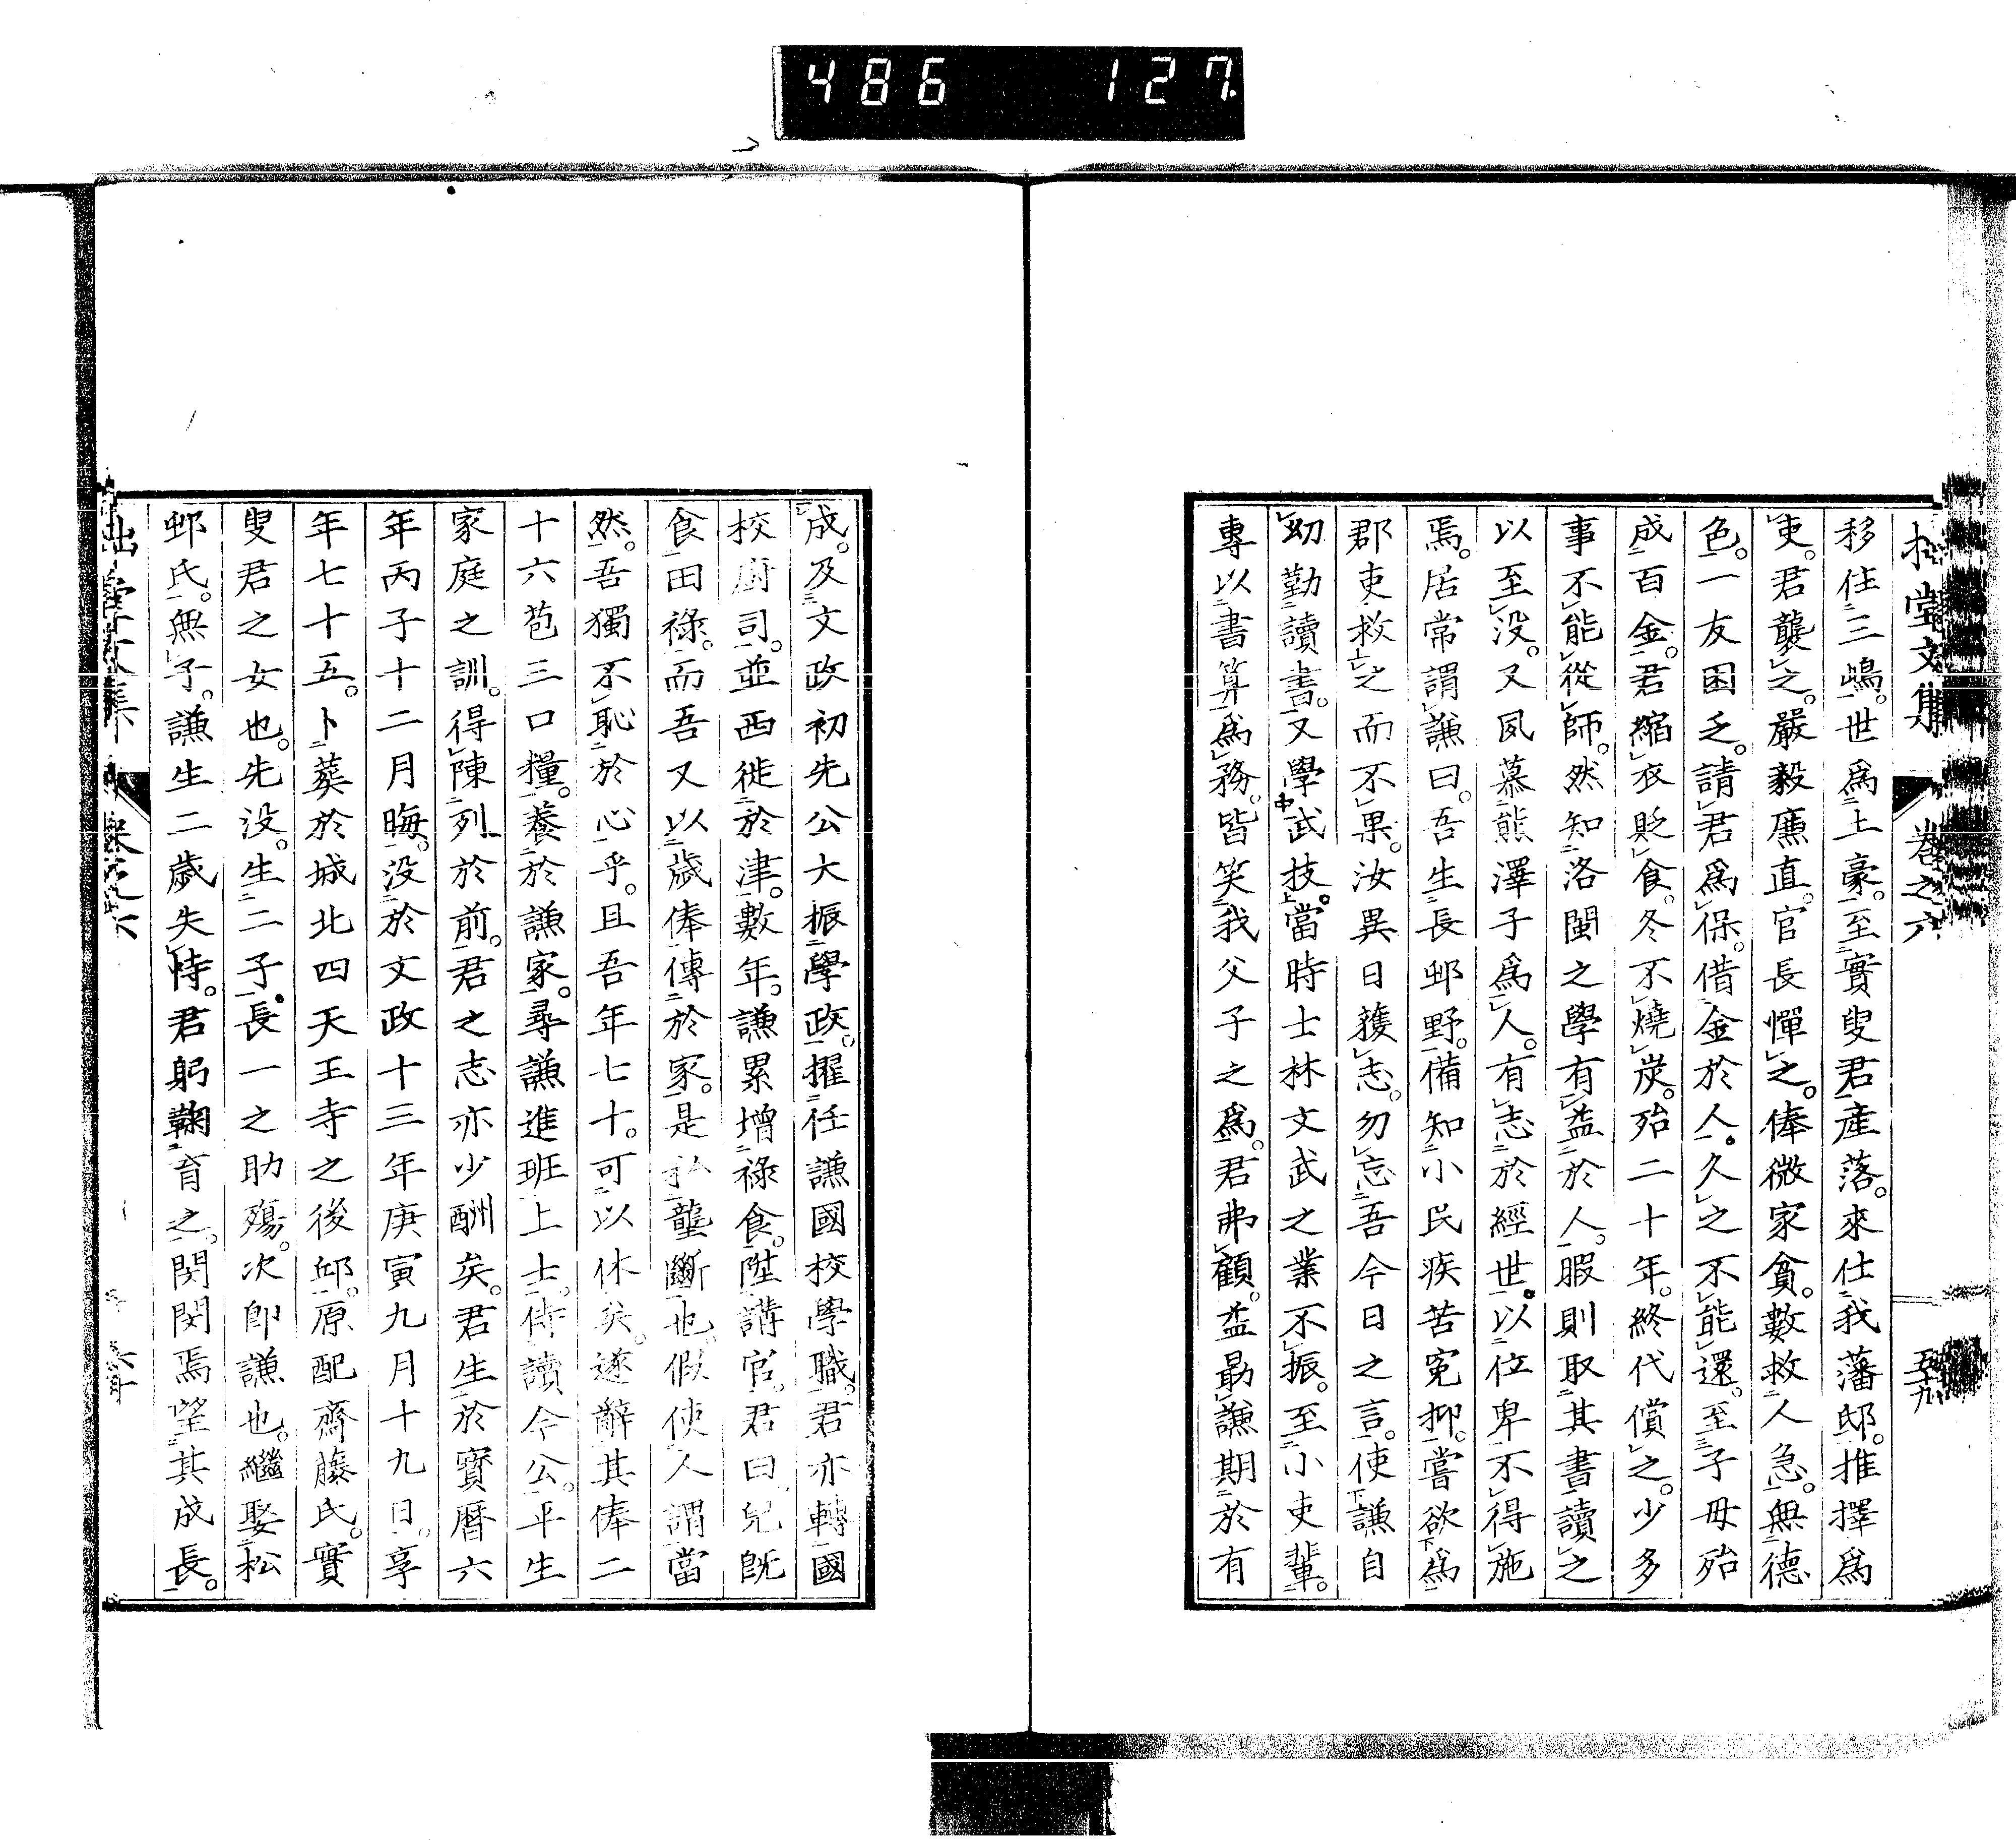 486 127
拙堂文集 卷之六 五十九
移住三嶋。世爲土豪。至實叟君產落。來仕我藩邸。推擇爲
吏。君襲之。嚴毅廉直。官長憚之。俸微家貧。數救人急。無德
色。一友困乏。請君爲保。借金於人。久之不能還。至子母殆
成百金。君縮衣貶食。冬不燒炭。殆二十年。終代償之。少多
事不能從師。然知洛閩之學有益於人。暇則取其書讀之
以至没。又夙慕熊澤子爲人。有志於經世。以位卑不得施
焉。居常謂謙曰。吾生長邨野。備知小民疾苦冤抑。嘗欲爲
郡吏救之而不果。汝異日獲志。勿忘吾今日之言。使謙自
幼勤讀書。又學武技。當時士林文武之業不振。至小吏輩。
專以書算爲務。皆笑我父子之爲。君弗顧。益勗謙期於有
成。及文政初先公大振學政。擢任謙國校學職。君亦轉國
校廚司。並西徙於津。數年。謙累增祿食。陞講官。君曰。兒既
食田祿。而吾又以歲俸傳於家。是私壟斷也。假使人謂當
然。吾獨不恥於心乎。且吾年七十。可以休矣。遂辭其俸二
十六苞三口糧。養於謙家。尋謙進班上士。侍讀今公。平生
家庭之訓。得陳列於前。君之志亦少酬矣。君生於寶曆六
年丙子十二月晦。没於文政十三年庚寅九月十九日。享
年七十五。卜葬於城北四天王寺之後邱。原配齋藤氏。實
叟君之女也。先没。生二子。長一之助殤。次卽謙也。繼娶松
邨氏。無子。謙生二歲失恃。君躬鞠育之。閔閔焉望其成長。
拙堂文集 卷之六 六十